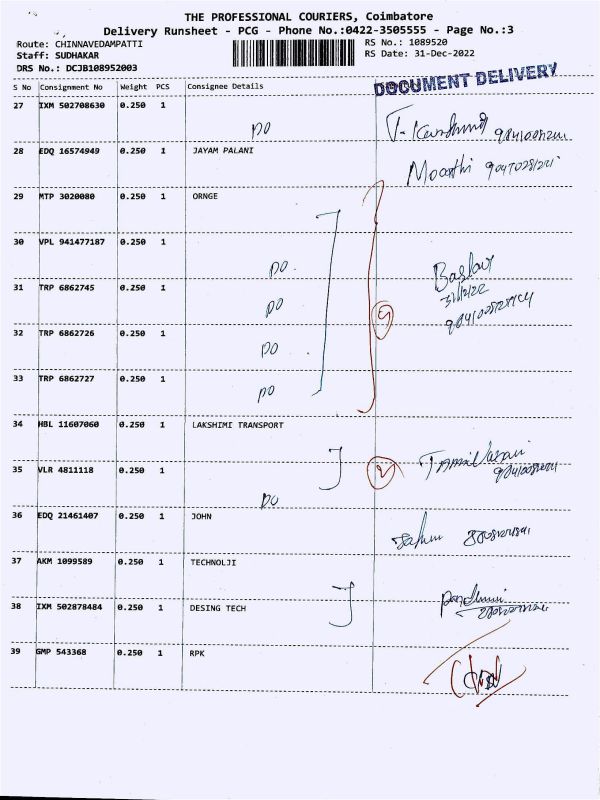 THE PROFESSIONAL COURIERS, Coimbatore
Delivery Runsheet - PCG - Phone No.:0422-3505555 - Page No.:3
Route: CHINNAVEDAMPATTI RS No.: 1089520
Staff: SUDHAKAR RS Date: 31-Dec-2022
DRS No.: DCJB108952003
DOCUMENT DELIVERY
S No Consignment No Weight PCS Consignee Details
27 IXM 502708630 0.250 1
DO
28 EDQ 16574949 0.250 1 JAYAM PALANI
Moorthi
29 MTP 3020080 0.250 1 ORNGE
30 VPL 941477187 0.250 1
DO
31 TRP 6862745 0.250 1
31/12/22
DO
32 TRP 6862726 0.250 1
DO
33 TRP 6862727 0.250 1
DO
34 HBL 11607060 0.250 1 LAKSHIMI TRANSPORT
35 VLR 4811118 0.250 1
2
DO
36 EDQ 21461407 0.250 1 JOHN
37 AKM 1099589 0.250 1 TECHNOLJI
38 IXM 502878484 0.250 1 DESING TECH
39 GMP 543368 0.250 1 RPK